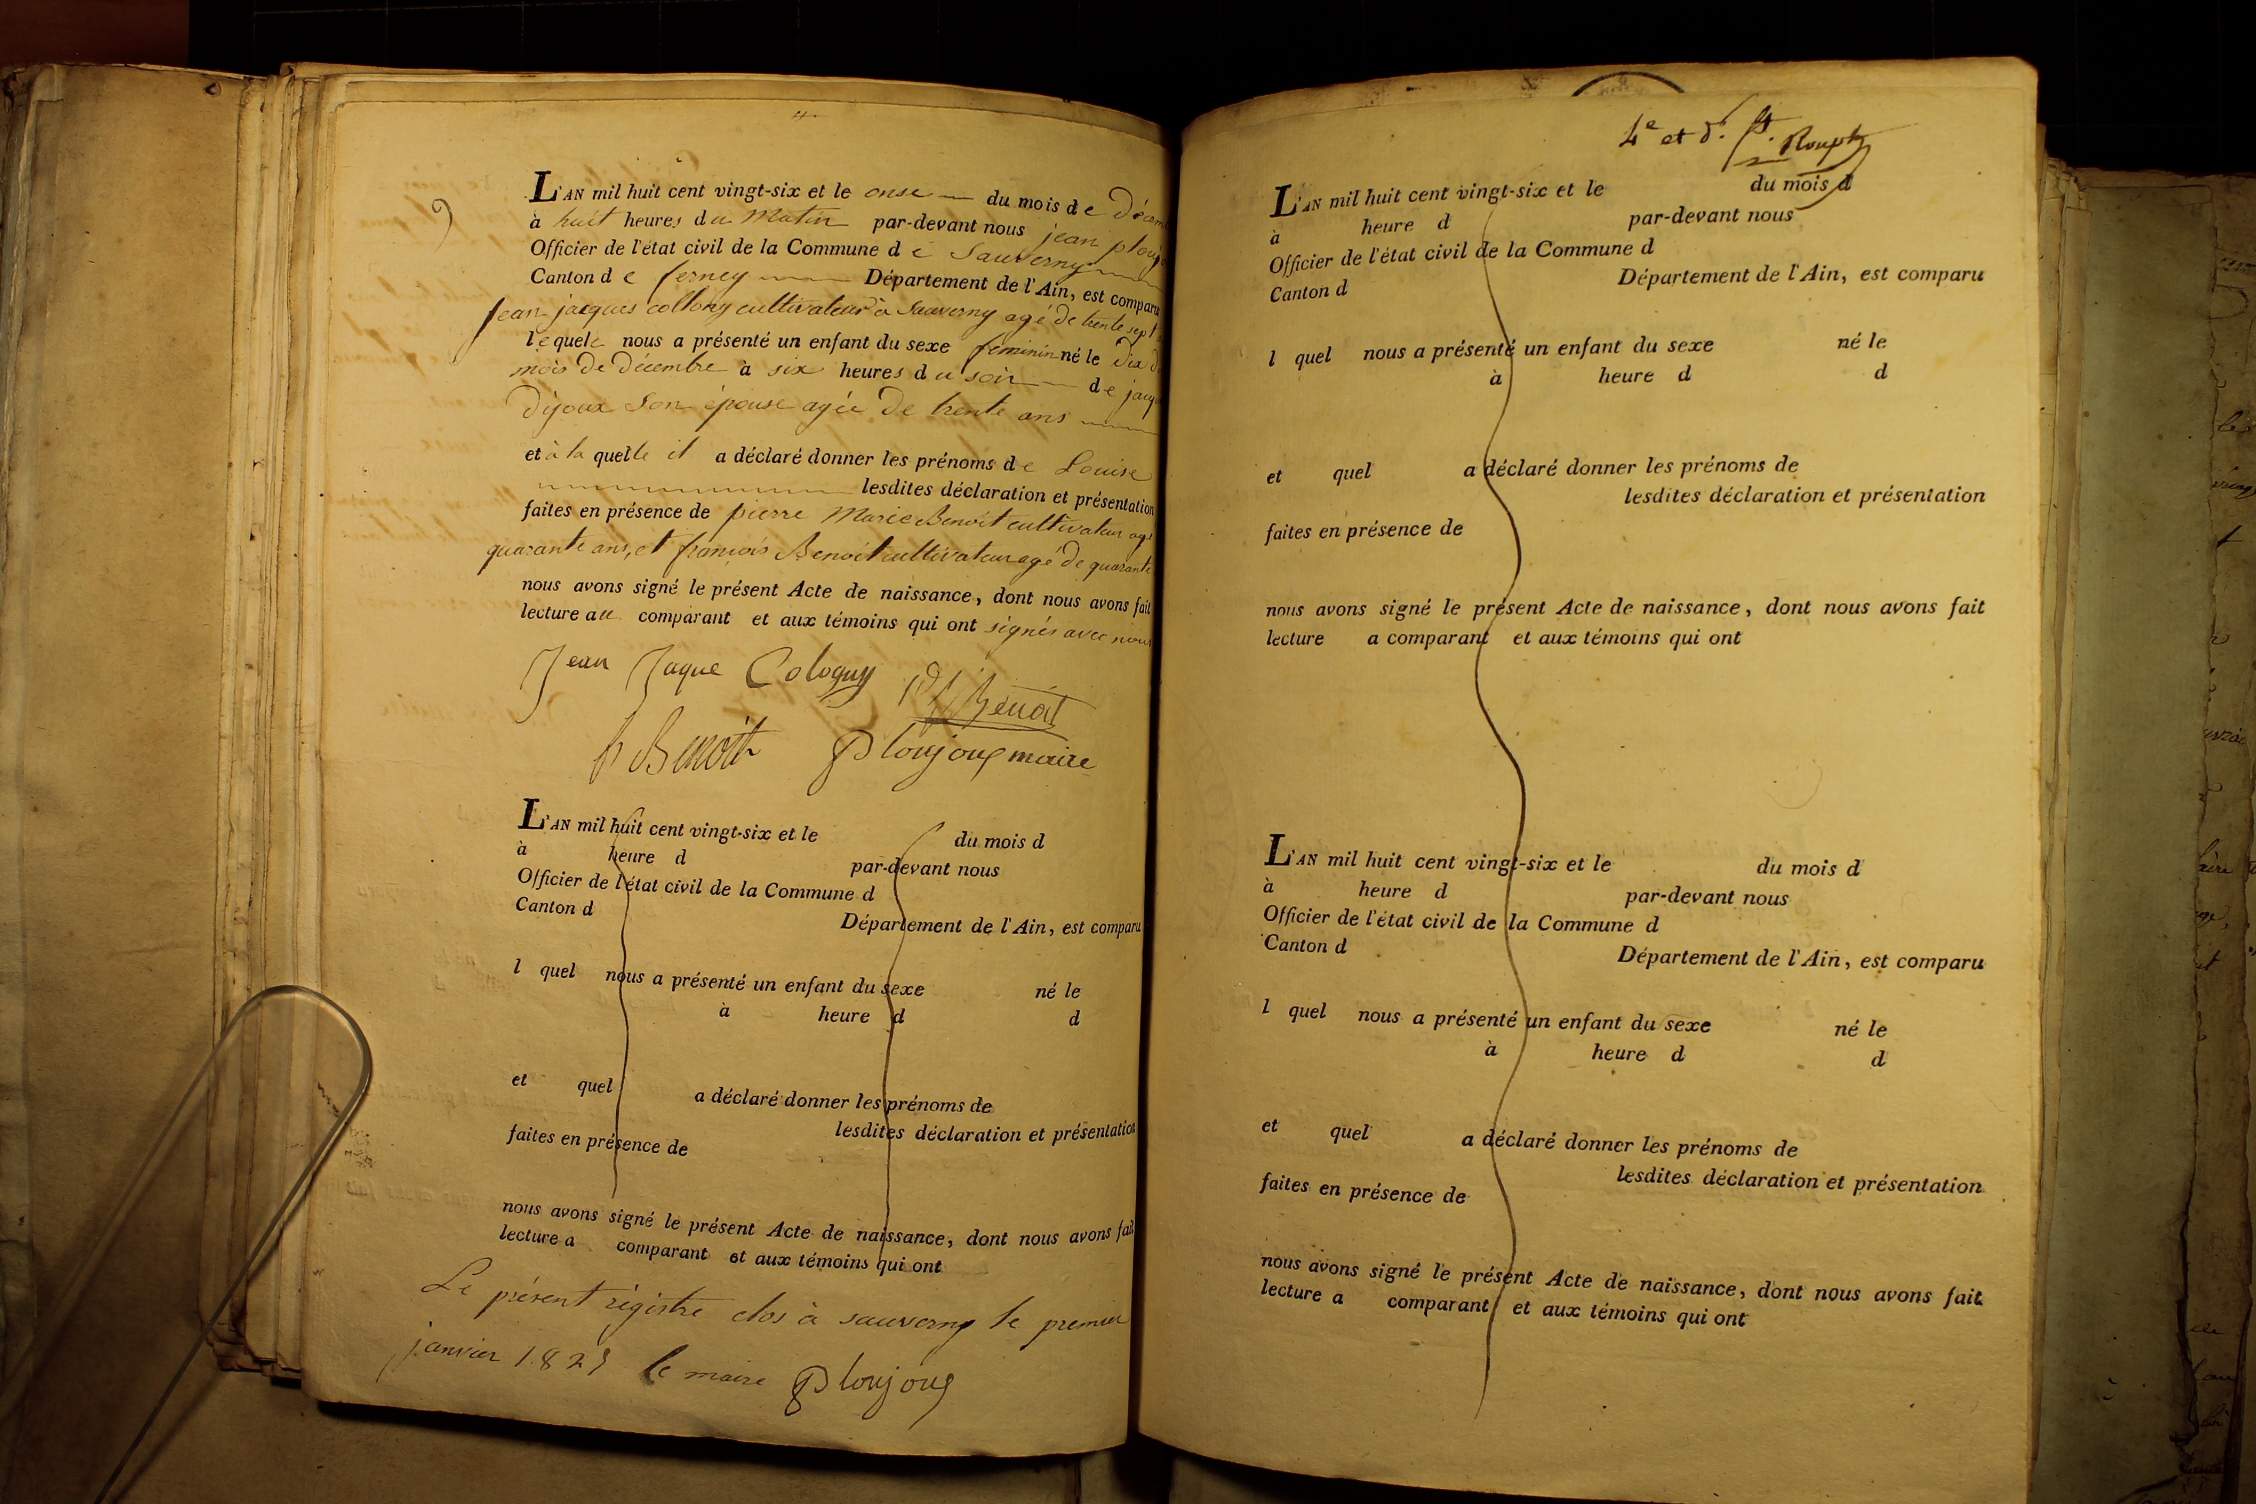 9
L'AN mil huit cent vingt-six et le onse du mois de Décem
à huit heures du Matin par-devant nous jean plouj
Officier de l'état civil de la Commune de Sauverny
Canton de ferney Département de l'Ain, est comparu
jean jacques collony cultivateur à Sauverny agé de trente sept
lequele nous a présenté un enfant du sexe féminin né le Dix d
mois de Décembre à six heures du soir de jacq
Dijoux son épouse agée de trente ans
et à la quelle il a déclaré donner les prénoms de Louise
lesdites déclaration et présentation
faites en présence de pierre Marie Benoit cultivateur agé
quarante ans, et françois Benoit cultivateur agé de quarante
nous avons signé le présent Acte de naissance, dont nous avons fait
lecture au comparant et aux témoins qui ont signés avec nous
Jean Jaque Cologny Benoit
Benoit Ploujoux maire
L'AN mil huit cent vingt-six et le du mois d
à heure d par-devant nous
Officier de l'état civil de la Commune d
Canton d Département de l'Ain, est comparu
l quel nous a présenté un enfant du sexe né le
à heure d d
et quel a déclaré donner les prénoms de
lesdites déclaration et présentation
faites en présence de
nous avons signé le présent Acte de naissance, dont nous avons fait
lecture a comparant et aux témoins qui ont
Le présent régistre clos à sauverny le premier
janvier 1827 le maire Ploujoux
4e et d. ft. Roupt
L'AN mil huit cent vingt-six et le du mois d
à heure d par-devant nous
Officier de l'état civil de la Commune d
Canton d Département de l'Ain, est comparu
l quel nous a présenté un enfant du sexe né le
à heure d d
et quel a déclaré donner les prénoms de
lesdites déclaration et présentation
faites en présence de
nous avons signé le présent Acte de naissance, dont nous avons fait
lecture a comparant et aux témoins qui ont
L'AN mil huit cent vingt-six et le du mois d
à heure d par-devant nous
Officier de l'état civil de la Commune d
Canton d Département de l'Ain, est comparu
l quel nous a présenté un enfant du sexe né le
à heure d d
et quel a déclaré donner les prénoms de
lesdites déclaration et présentation
faites en présence de
nous avons signé le présent Acte de naissance, dont nous avons fait
lecture a comparant et aux témoins qui ont